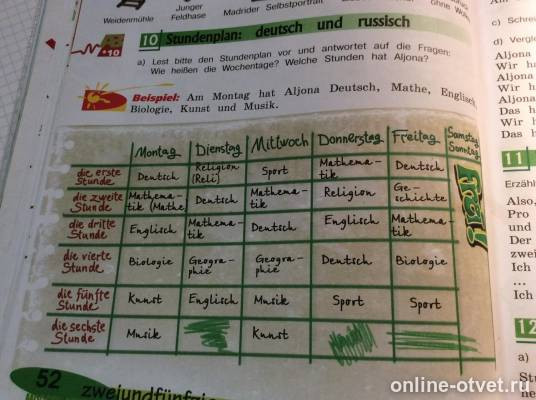 Weidenmühle
Junger
Feldhase
Madrider Selbstportrait
ohne
10 Stundenplan: deutsch und russisch
+10
a) Lest bitte den Stundenplan vor und antwortet auf die Fragen:
Wie heißen die Wochentage? Welche Stunden hat Aljona?
Beispiel: Am Montag hat Aljona Deutsch, Mathe, Englisch,
Biologie, Kunst und Musik.
Montag Dienstag Mittwoch Donnerstag Freitag Samstag
Sonntag
die erste Stunde Deutsch Religion (Reli) Sport Mathema-tik Deutsch
die zweite Stunde Mathema-tik (Mathe) Deutsch Mathema-tik Religion Ge-schichte
die dritte Stunde Englisch Mathema-tik Deutsch Englisch Mathema-tik
die vierte Stunde Biologie Geogra-phie Geogra-phie Deutsch Biologie
die fünfte Stunde Kunst Englisch Musik Sport Sport
die sechste Stunde Musik Kunst
Frei!
52 zweiundfünfzig
c) Schrei
d) Vergle
Aljona
Wir h
Aljona
Wir h
Aljona
Das h
Wir h
Das h
11
Erzähl
Also,
Pro
und
Der
zwei
Ich
...
Ich
12
a)
Stu
online-otvet.ru